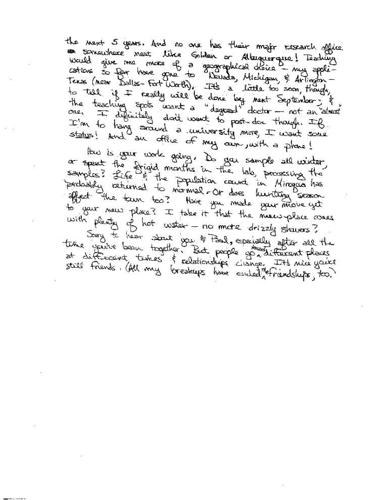 the next 5 years. And no one has their major research office
somewhere neat like Golden or Albuquerque! Teaching
would give me more of a geographical choice - my appli-
cations so far have gone to Nevada, Michigan, & Arlington -
Texas (near Dallas-Fort Worth). It's a little too soon, though,
to tell if I really will be done by next September, &
the teaching spots want a "degreed" doctor - not an "almost"
one. I definitely don't want to post-doc though. If
I'm to hang around a university more, I want some
status! And an office of my own, with a phone!
How is your work going. Do you sample all winter,
or spent the frigid months in the lab, processing the
samples? Life & the population count in has
probably returned to normal. Or does hunting season
affect the town too? Have you made your move yet
to your new place? I take it that the new place comes
with plenty of hot water - no more drizzly showers?
Sorry to hear about you & Paul, especially after all the
time you've been together. But people go different places
at different times & relationships change. It's nice you're
still friends. (All my breakups have ended friendships, too.)